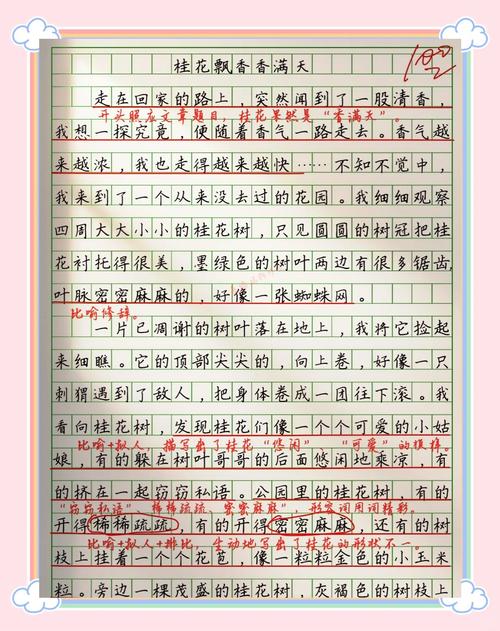 桂花飘香香满天
走在回家的路上，突然闻到了一股清香，
开头照应文章题目，桂花果然是“香满天”。
我想一探究竟，便随着香气一路走去。香气越
来越浓，我也走得越来越快……不知不觉中，
我来到了一个从来没去过的花园。我细细观察
四周大大小小的桂花树，只见圆圆的树冠把桂
花衬托得很美，墨绿色的树叶两边有很多锯齿，
叶脉密密麻麻的，好像一张蜘蛛网。
比喻修辞。
一片已凋谢的树叶落在地上，我将它捡起
来细瞧。它的顶部尖尖的，向上卷，好像一只
刺猬遇到了敌人，把身体卷成一团往下滚。我
看向桂花树，发现桂花们像一个个可爱的小姑
比喻+拟人，描写出了桂花“悠闲”“可爱”的模样。
娘，有的躲在树叶哥哥的后面悠闲地乘凉，有
的挤在一起窃窃私语。公园里的桂花树，有的
“窃窃私语”、稀稀疏疏、密密麻麻”，形容词用词精彩。
开得稀稀疏疏，有的开得密密麻麻，还有的树
比喻+拟人+排比，生动地写出了桂花的形状不一。
枝上挂着一个个花苞，像一粒粒金色的小玉米
粒。旁边一棵茂盛的桂花树，灰褐色的树枝上